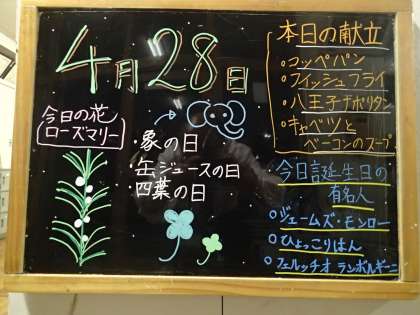 4月28日
今日の花
ローズマリー
・象の日
・缶ジュースの日
四葉の日
本日の献立
○コッペパン
○フィッシュフライ
○八王子ナポリタン
○キャベツと
ベーコンのスープ
今日誕生日の
有名人
○ジェームズ・モンロー
○ひょっこりはん
○フェルッチオ ランボルギーニ